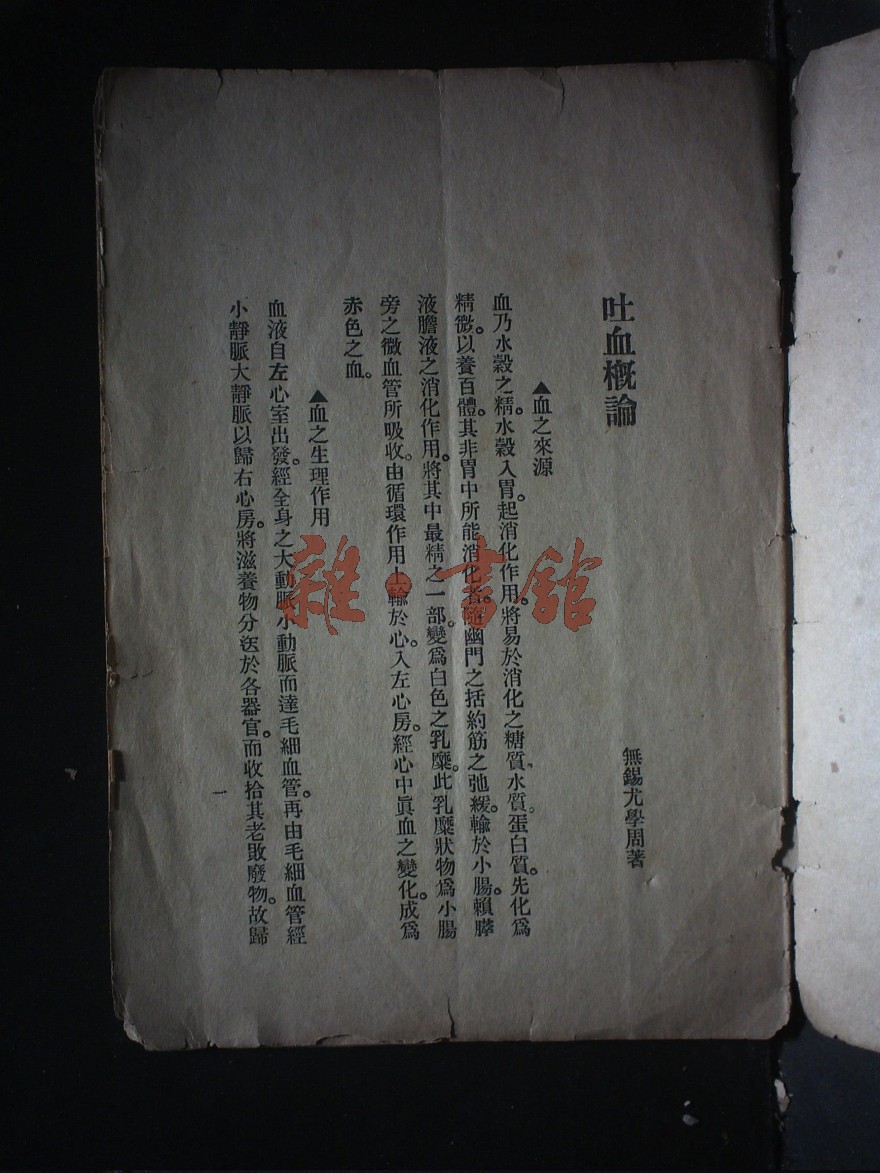 吐血概論
無錫尤學周著
▲血之來源
血乃水穀之精。水穀入胃。起消化作用。將易於消化之糖質、水質。蛋白質。先化爲
精微。以養百體。其非胃中所能消化者。隨幽門之括約筋之弛緩。輸於小腸。賴膵
液膽液之消化作用。將其中最精之一部。變爲白色之乳糜。此乳糜狀物爲小腸
旁之微血管所吸收。由循環作用上輸於心。入左心房。經心中眞血之變化。成爲
赤色之血。
▲血之生理作用
血液自左心室出發。經全身之大動脈小動脈而達毛細血管。再由毛細血管經
小靜脈大靜脈以歸右心房。將滋養物分送於各器官。而收拾其老敗廢物。故歸
一
雜·書館